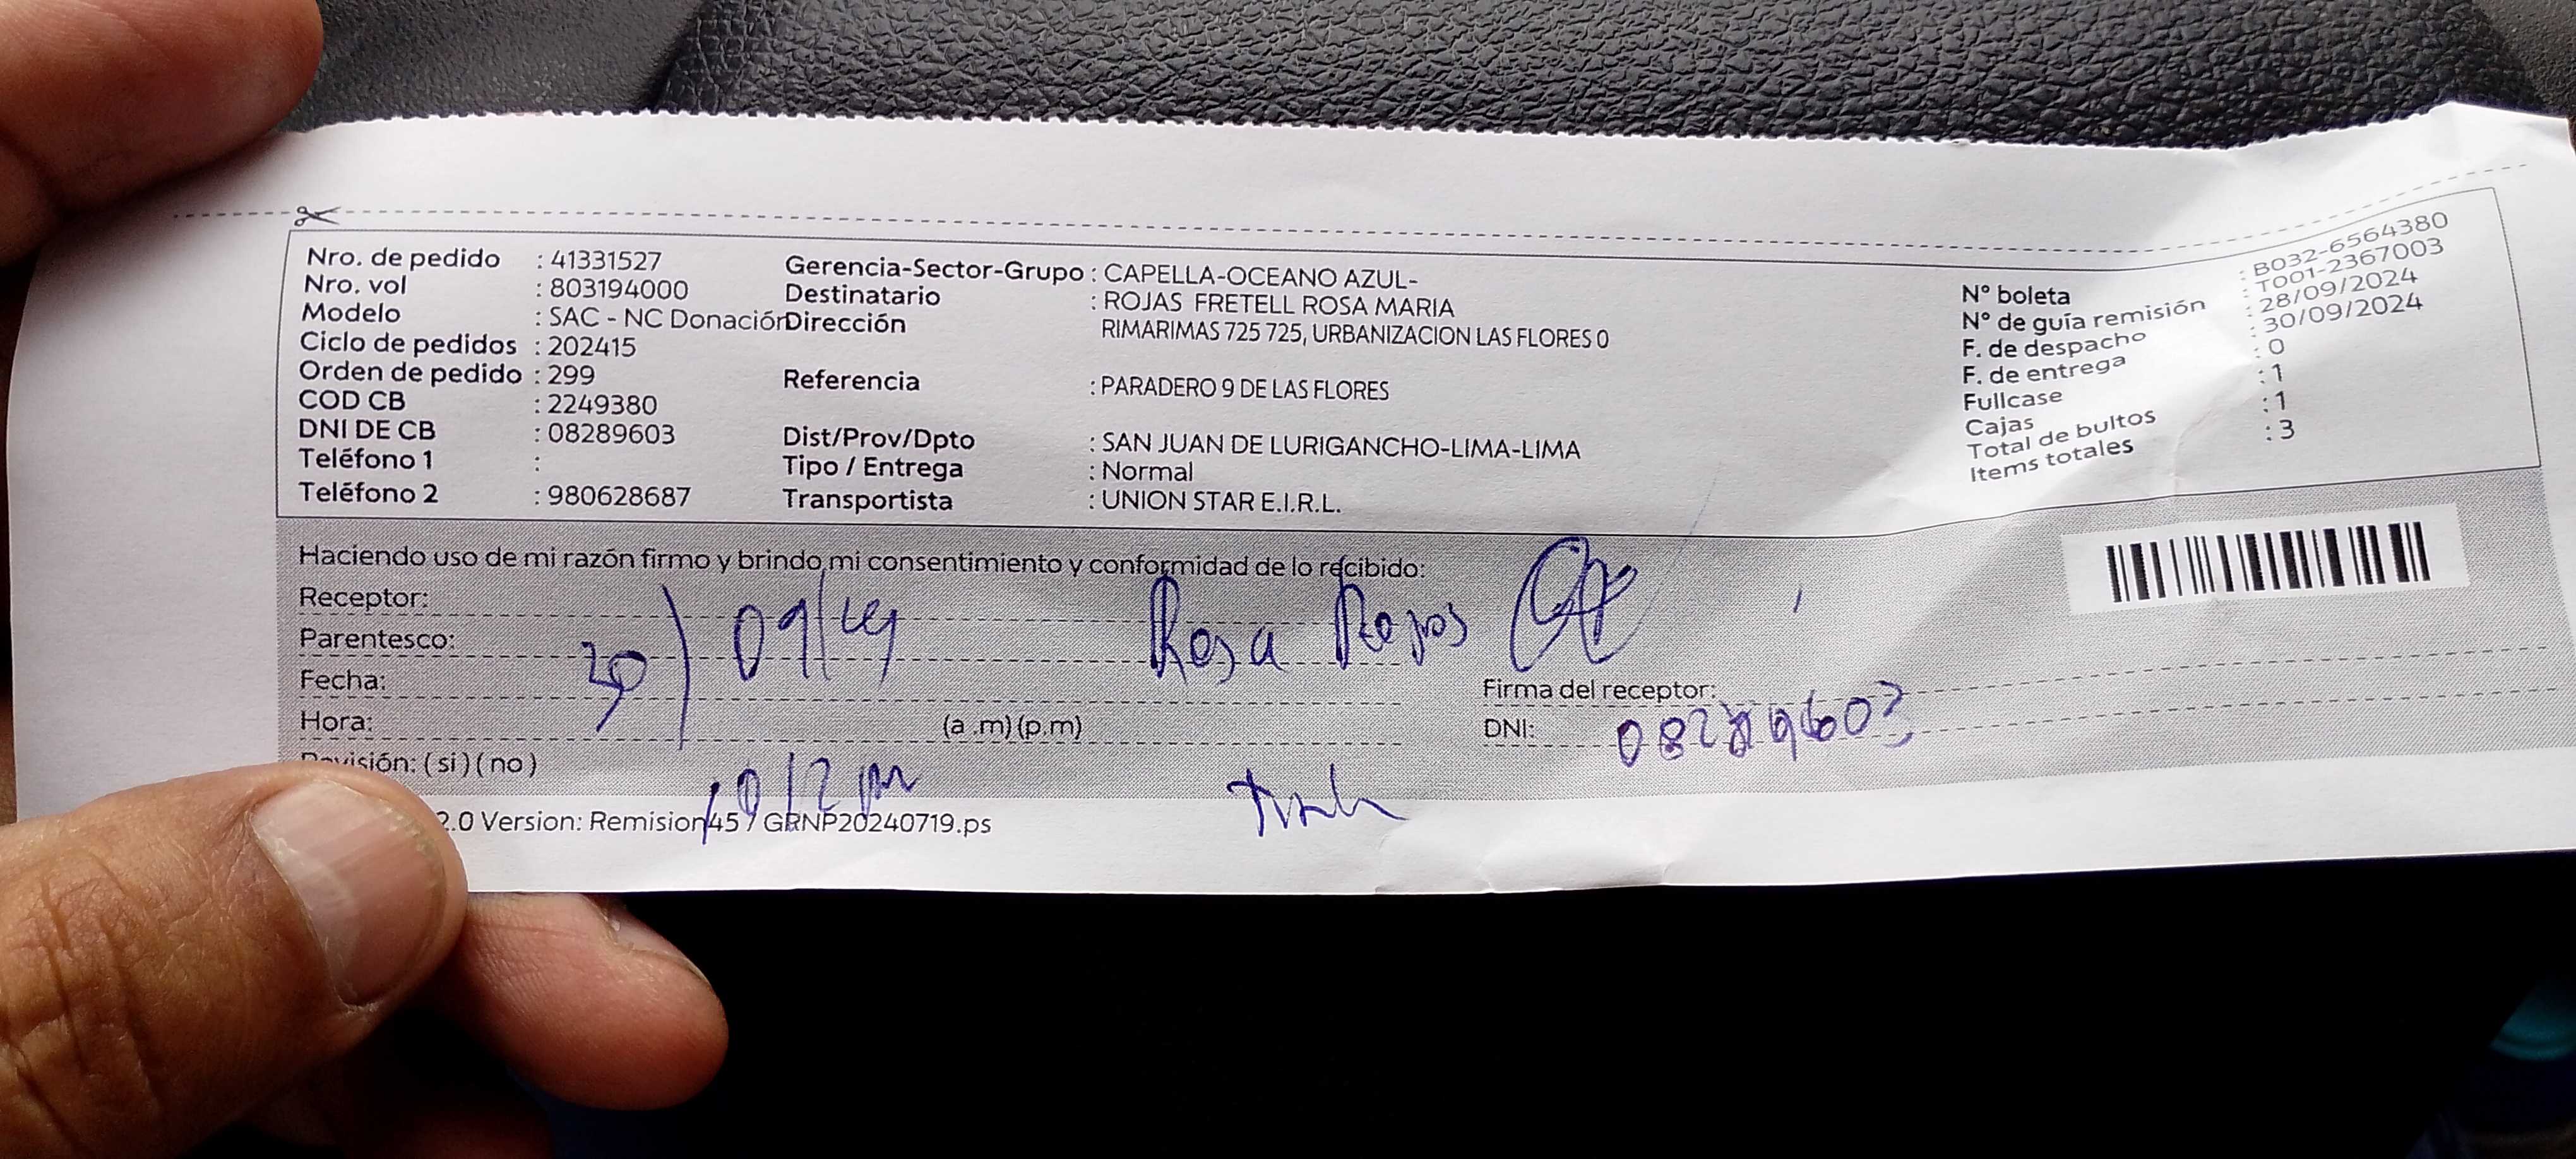 Nro. de pedido : 41331527
Nro. vol : 803194000
Modelo : SAC - NC Donación
Ciclo de pedidos : 202415
Orden de pedido : 299
COD CB : 2249380
DNI DE CB : 08289603
Teléfono 1 :
Teléfono 2 : 980628687
Gerencia-Sector-Grupo : CAPELLA-OCEANO AZUL-
Destinatario : ROJAS FRETELL ROSA MARIA
Dirección RIMARIMAS 725 725, URBANIZACION LAS FLORES 0
Referencia : PARADERO 9 DE LAS FLORES
Dist/Prov/Dpto : SAN JUAN DE LURIGANCHO-LIMA-LIMA
Tipo / Entrega : Normal
Transportista : UNION STAR E.I.R.L.
N° boleta : B032-6564380
N° de guía remisión : T001-2367003
F. de despacho : 28/09/2024
F. de entrega : 30/09/2024
Fullcase : 0
Cajas : 1
Total de bultos : 1
Items totales : 3
Haciendo uso de mi razón firmo y brindo mi consentimiento y conformidad de lo recibido:
Receptor:
Rosa Rojas
Parentesco:
Fecha: 30/09/24
Hora: (a .m) (p.m)
Firma del receptor:
DNI: 08289603
Revisión: (si) (no)
2.0 Version: Remision45 / GRNP20240719.ps